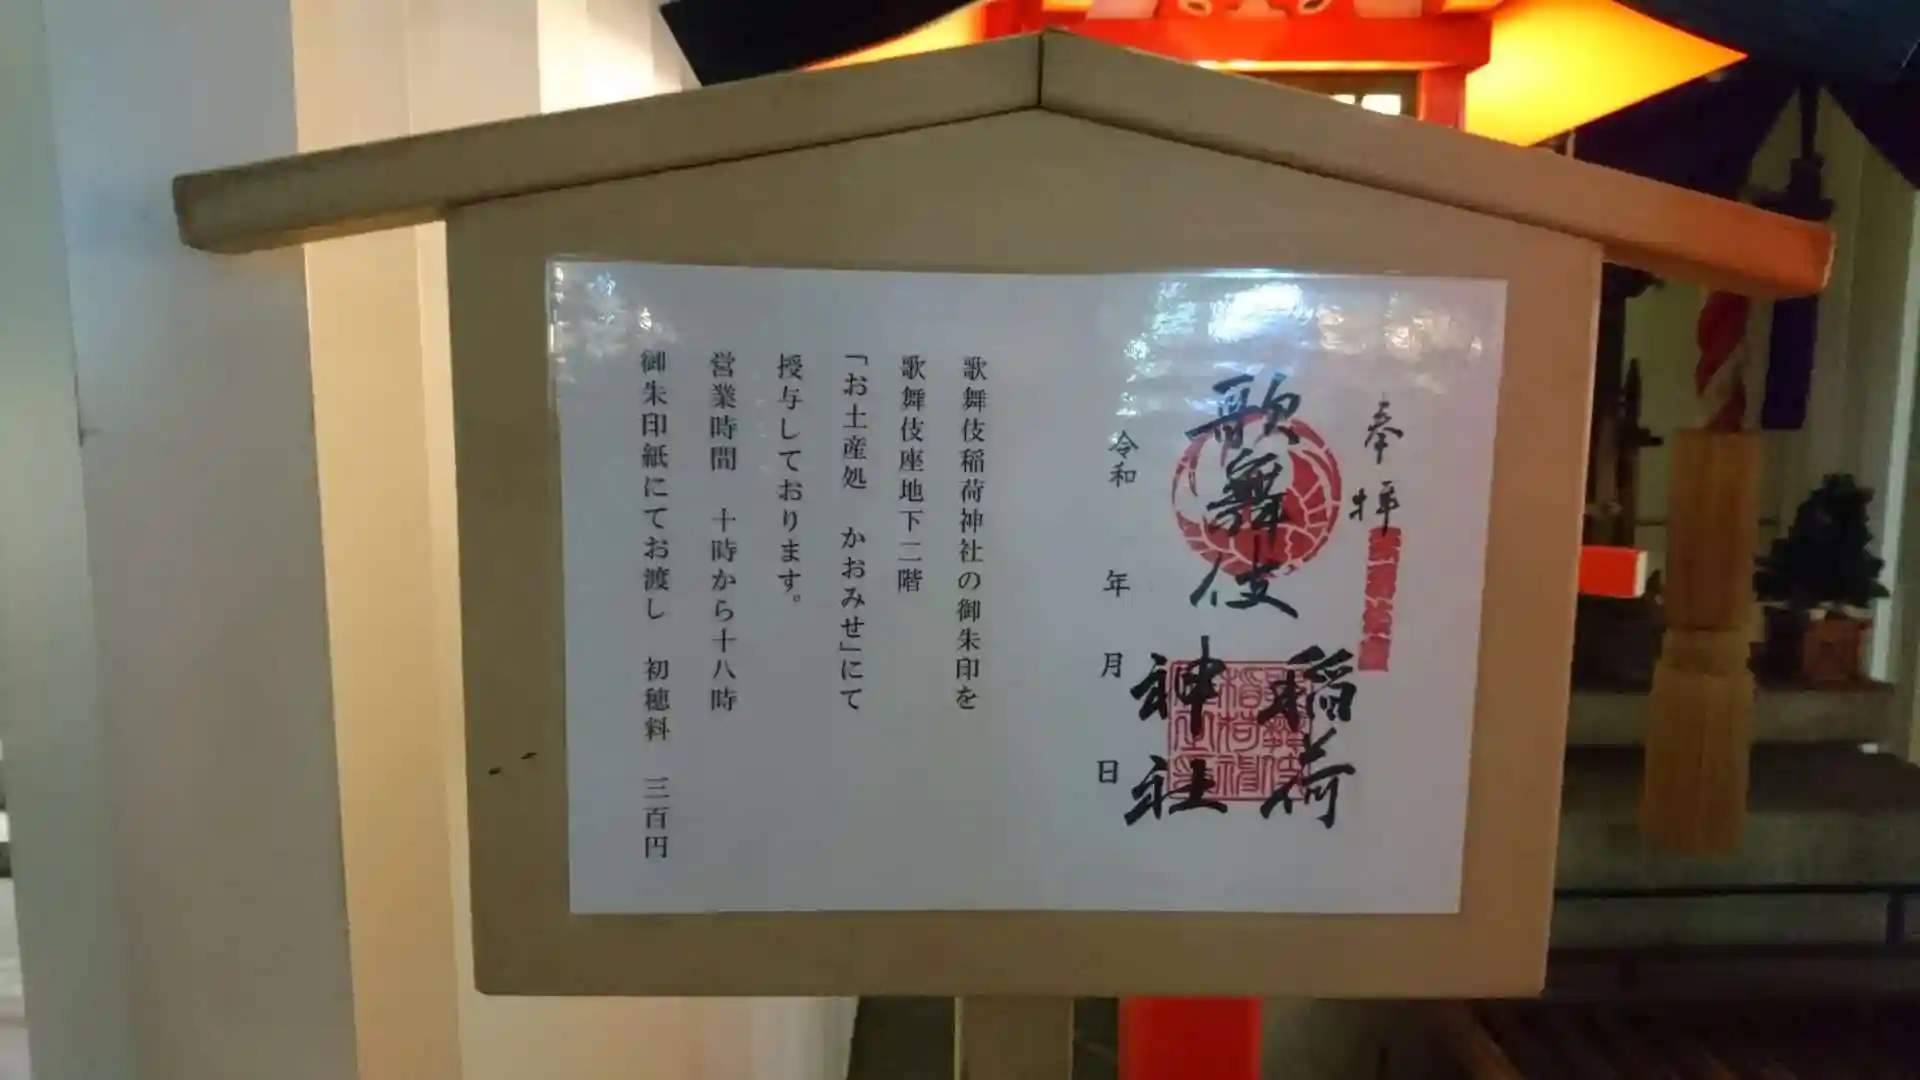 奉拝
歌舞伎座
歌舞伎
稲荷
神社
令和 年 月 日
歌舞伎稲荷神社の御朱印を
歌舞伎座地下二階
「お土産処 かおみせ」にて
授与しております。
営業時間 十時から十八時
御朱印紙にてお渡し 初穂料 三百円